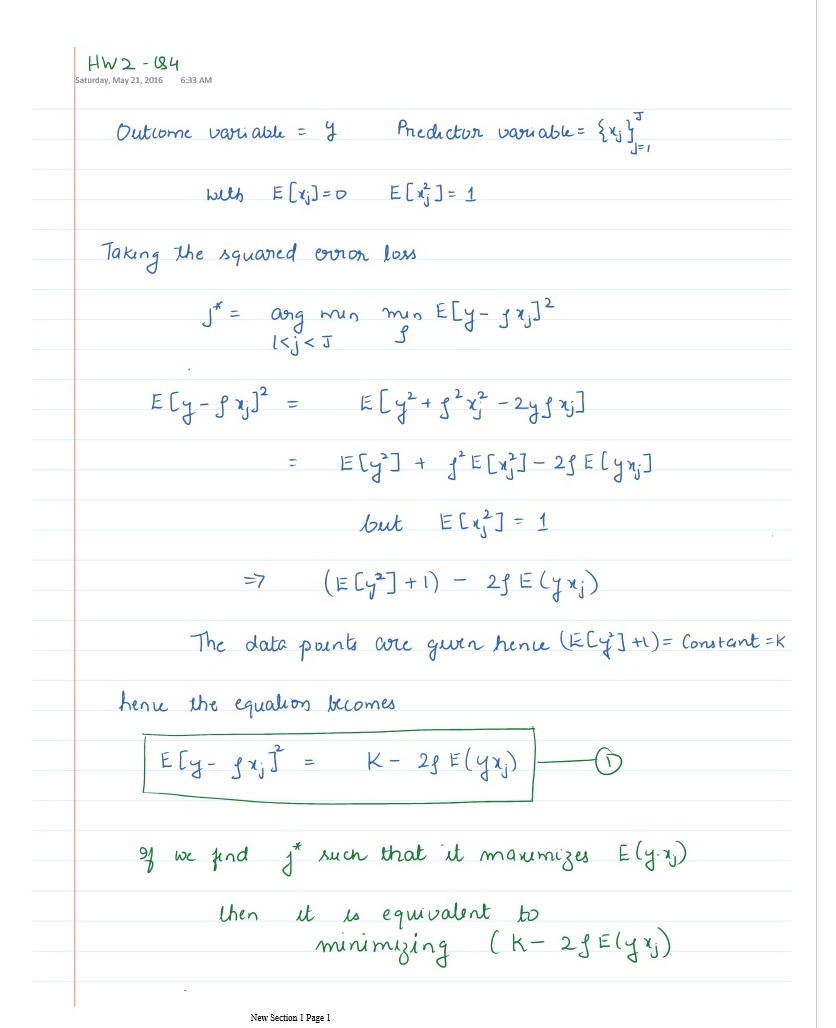 HW2 - Q4
Saturday, May 21, 2016 6:33 AM
Outcome variable = y Predictor variable = {xj}ᴶj=1
with E[xj]=0 E[xj²] = 1
Taking the squared error loss
j* = arg min min E[y - ρxj]²
1<j<J ρ
E[y - ρxj]² = E[y² + ρ²xj² - 2yρxj]
= E[y²] + ρ²E[xj²] - 2ρE[yxj]
but E[xj²] = 1
=> (E[y²]+1) - 2ρE(yxj)
The data points are given hence (E[y²]+1) = Constant = K
hence the equation becomes
E[y - ρxj]² = K - 2ρE(yxj) ①
If we find j* such that it maximizes E(y.xj)
then it is equivalent to
minimizing (K - 2ρE(yxj)
New Section 1 Page 1